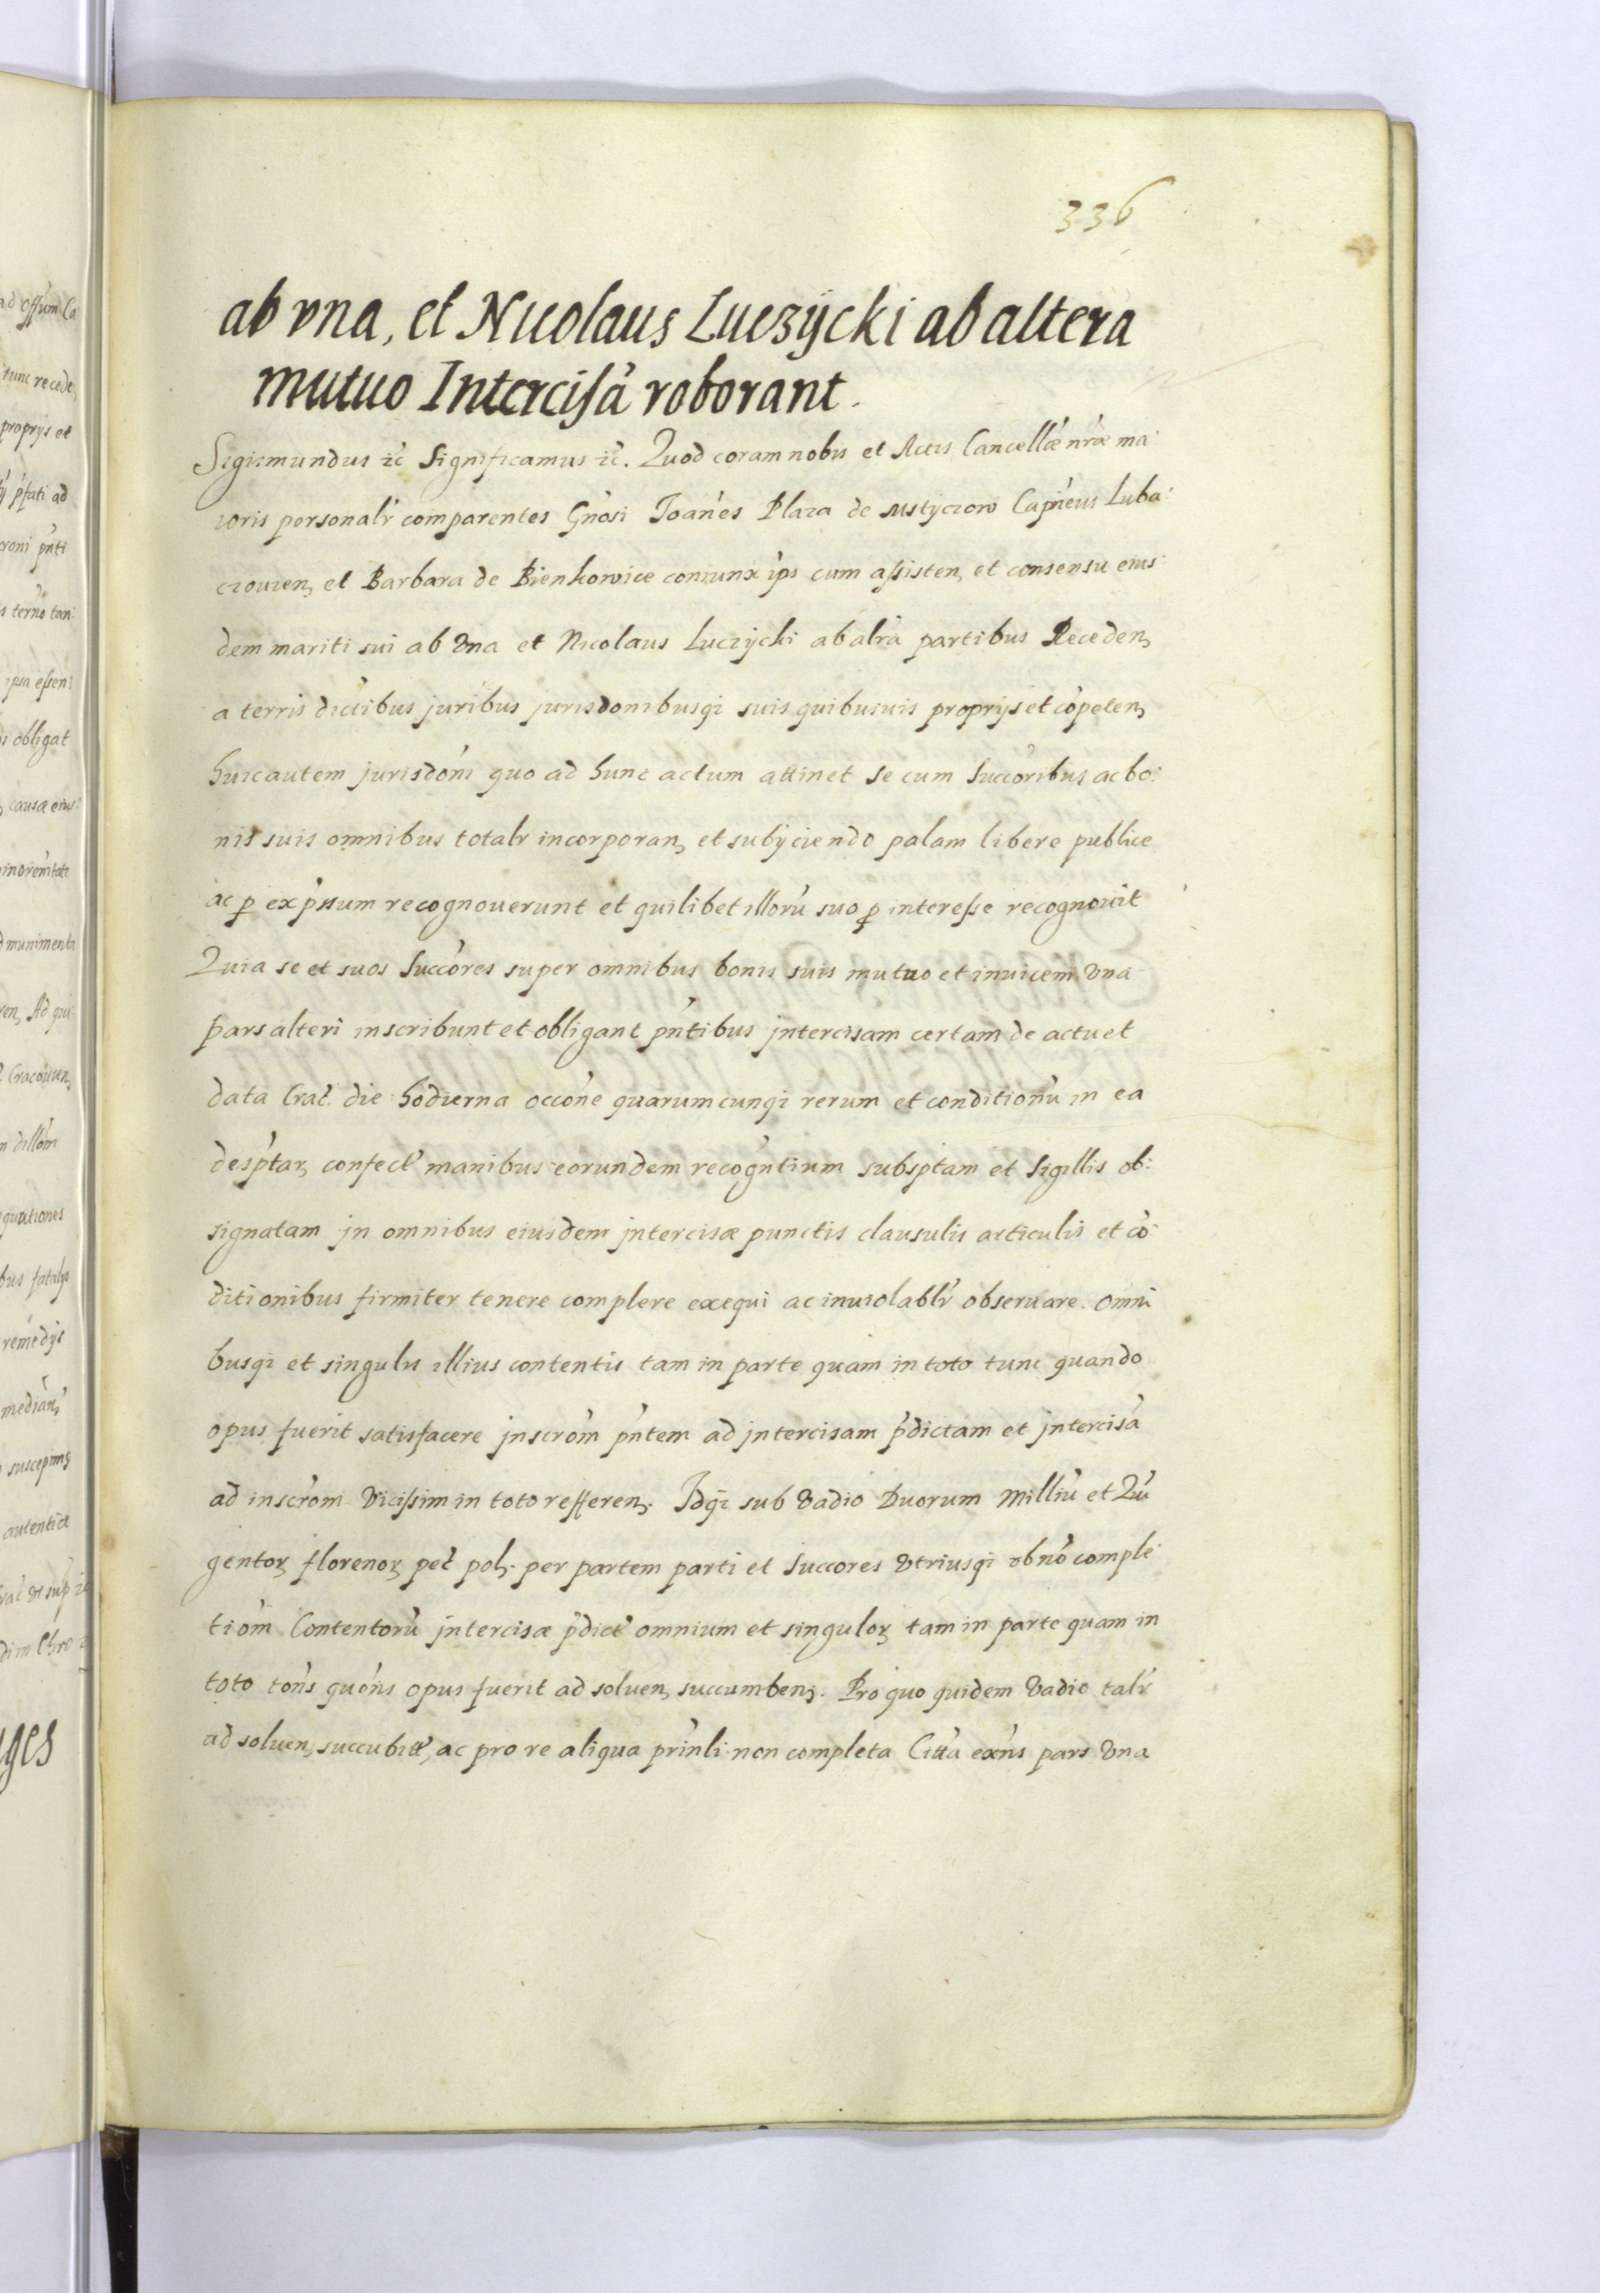 336
ab vna, et Nicolaus Luczÿcki ab altera
mutuo Intercisã roborant.
Sigismundus ꝛc̃ Significamus ꝛc̃. Quod coram nobis et Actis Cancellæ nræ ma:
ioris personalr̃ comparentes Gnosi Joães Plaza de Mstÿczow Capñeus Luba:
czouien, et Barbara de Bienkowice coniunx ips cum assisten, et consensu eius:
dem mariti sui ab vna et Nicolaus Luczÿcki ab alrã partibus Receden,
a terris dictibus juribus jurisdonibusqꝫ suis quibusuis proprijs et cõpeten,
huic autem jurisdoni quo ad hunc actum attinet se cum Succoribus ac bo:
nis suis omnibus totalr̃ incorporan, et subÿciendo palam libere publice
ac ꝑ expssum recognouerunt et quilibet illorũ suo ꝑ interesse recognouit
Quia se et suos Succores super omnibus bonis suis mutuo et inuicem vna
pars alteri inscribunt et obligant pñtibus jntercisam certam de actu et
data Crac̃. die hodierna occone quarumcunqꝫ rerum et conditionũ in ea
desptaꝝ confect̃ manibus eorundem recogntium subsptam et Sigillis ob:
signatam jn omnibus eiusdem jntercisæ punctis clausulis articulis et cõ:
ditionibus firmiter tenere complere exequi ac inuiolablr̃ obseruare. Omni
busqꝫ et singulis illius contentis tam in parte quam in toto tunc quando
opus fuerit satisfacere jnscrom pñtem ad jntercisam p̃dictam et jntercisã
ad inscrom vicissim in toto refferen. Idqꝫ sub vadio Duorum Milliũ et Quĩ
gentoꝝ florenoꝝ pec̃ pol. per partem parti et Succores vtriusqꝫ ob nõ comple
tiom Contentorũ jntercisæ p̃dict̃ omnium et singuloꝝ tam in parte quam in
toto tons quons opus fuerit ad soluen, succumben. Pro quo quidem vadio talr̃
ad soluen, succubitt̃, ac pro re aliqua prinli non completa Citta exñs pars vna